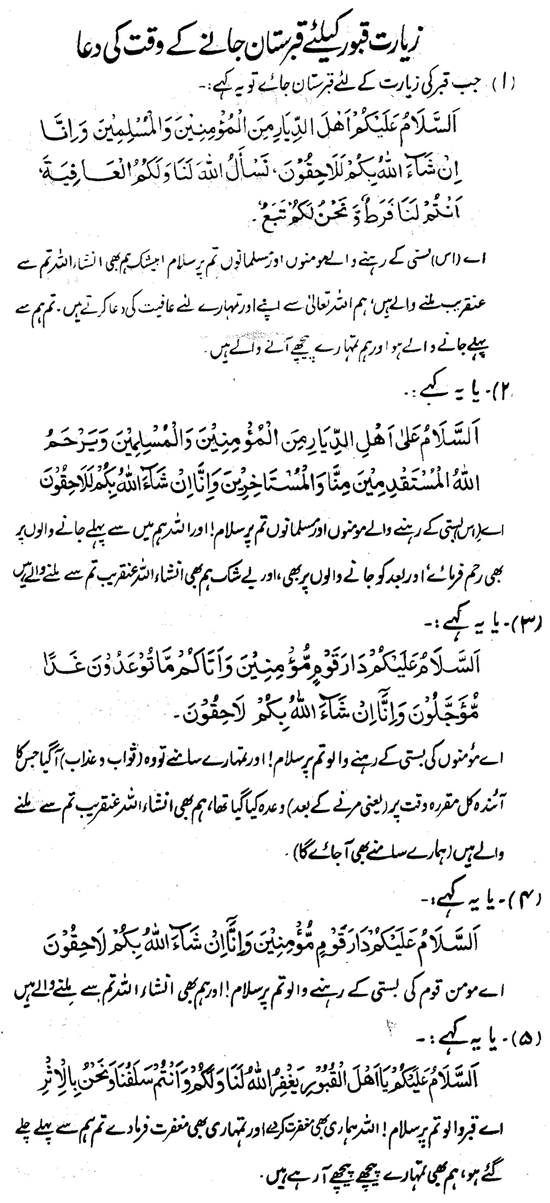 زیارت قبور کیلئے قبرستان جانے کے وقت کی دعا
(۱) جب قبر کی زیارت کے لئے قبرستان جائے تو یہ کہے:-
اَلسَّلَامُ عَلَيْكُمْ اَهْلَ الدِّيَارِ مِنَ الْمُؤْمِنِيْنَ وَالْمُسْلِمِيْنَ وَاِنَّا
اِنْ شَآءَ اللهُ بِكُمْ لَلَاحِقُوْنَ، نَسْأَلُ اللهَ لَنَا وَلَكُمُ الْعَافِيَةَ،
اَنْتُمْ لَنَا فَرَطٌ وَّ نَحْنُ لَكُمْ تَبَعٌ۔
اے (اس) بستی کے رہنے والے مومنوں اور مسلمانوں تم پر سلام! بیشک ہم بھی انشاء اللہ تم سے
عنقریب ملنے والے ہیں، ہم اللہ تعالیٰ سے اپنے اور تمہارے لئے عافیت کی دعا کرتے ہیں۔ تم ہم سے
پہلے جانے والے ہو اور ہم تمہارے پیچھے آنے والے ہیں۔
۲)۔ یا یہ کہے:۔
اَلسَّلَامُ عَلٰى اَهْلِ الدِّيَارِ مِنَ الْمُؤْمِنِيْنَ وَالْمُسْلِمِيْنَ وَيَرْحَمُ
اللهُ الْمُسْتَقْدِمِيْنَ مِنَّا وَالْمُسْتَاخِرِيْنَ وَاِنَّا اِنْ شَآءَ اللهُ بِكُمْ لَلَاحِقُوْنَ
اے (اس) بستی کے رہنے والے مومنوں اور مسلمانوں تم پر سلام! اور اللہ ہم میں سے پہلے جانے والوں پر
بھی رحم فرمائے اور بعد کو جانے والوں پر بھی، اور بے شک ہم بھی انشاء اللہ عنقریب تم سے ملنے والے ہیں
(۳)۔ یا یہ کہے:-
اَلسَّلَامُ عَلَيْكُمْ دَارَ قَوْمٍ مُّؤْمِنِيْنَ وَاَتَاكُمْ مَّا تُوْعَدُوْنَ غَدًا
مُّؤَجَّلُوْنَ وَاِنَّا اِنْ شَآءَ اللهُ بِكُمْ لَاحِقُوْنَ۔
اے مؤمنوں کی بستی کے رہنے والو تم پر سلام! اور تمہارے سامنے تو وہ (ثواب و عذاب) آگیا جس کا
آئندہ کل مقررہ وقت پر (یعنی مرنے کے بعد) وعدہ کیا گیا تھا، ہم بھی انشاء اللہ عنقریب تم سے ملنے
والے ہیں (ہمارے سامنے بھی آجائے گا)۔
(۴)۔ یا یہ کہے:-
اَلسَّلَامُ عَلَيْكُمْ دَارَ قَوْمٍ مُّؤْمِنِيْنَ وَاِنَّا اِنْ شَآءَ اللهُ بِكُمْ لَاحِقُوْنَ
اے مومن قوم کی بستی کے رہنے والو تم پر سلام! اور ہم بھی انشاء اللہ تم سے ملنے والے ہیں
(۵)۔ یا یہ کہے:-
اَلسَّلَامُ عَلَيْكُمْ يَا اَهْلَ الْقُبُوْرِ يَغْفِرُ اللهُ لَنَا وَلَكُمْ وَاَنْتُمْ سَلَفُنَا وَنَحْنُ بِالْاَثَرِ
اے قبر والو تم پر سلام! اللہ ہماری بھی مغفرت کردے اور تمہاری بھی مغفرت فرمادے تم ہم سے پہلے چلے
گئے ہو، ہم بھی تمہارے پیچھے پیچھے آرہے ہیں۔